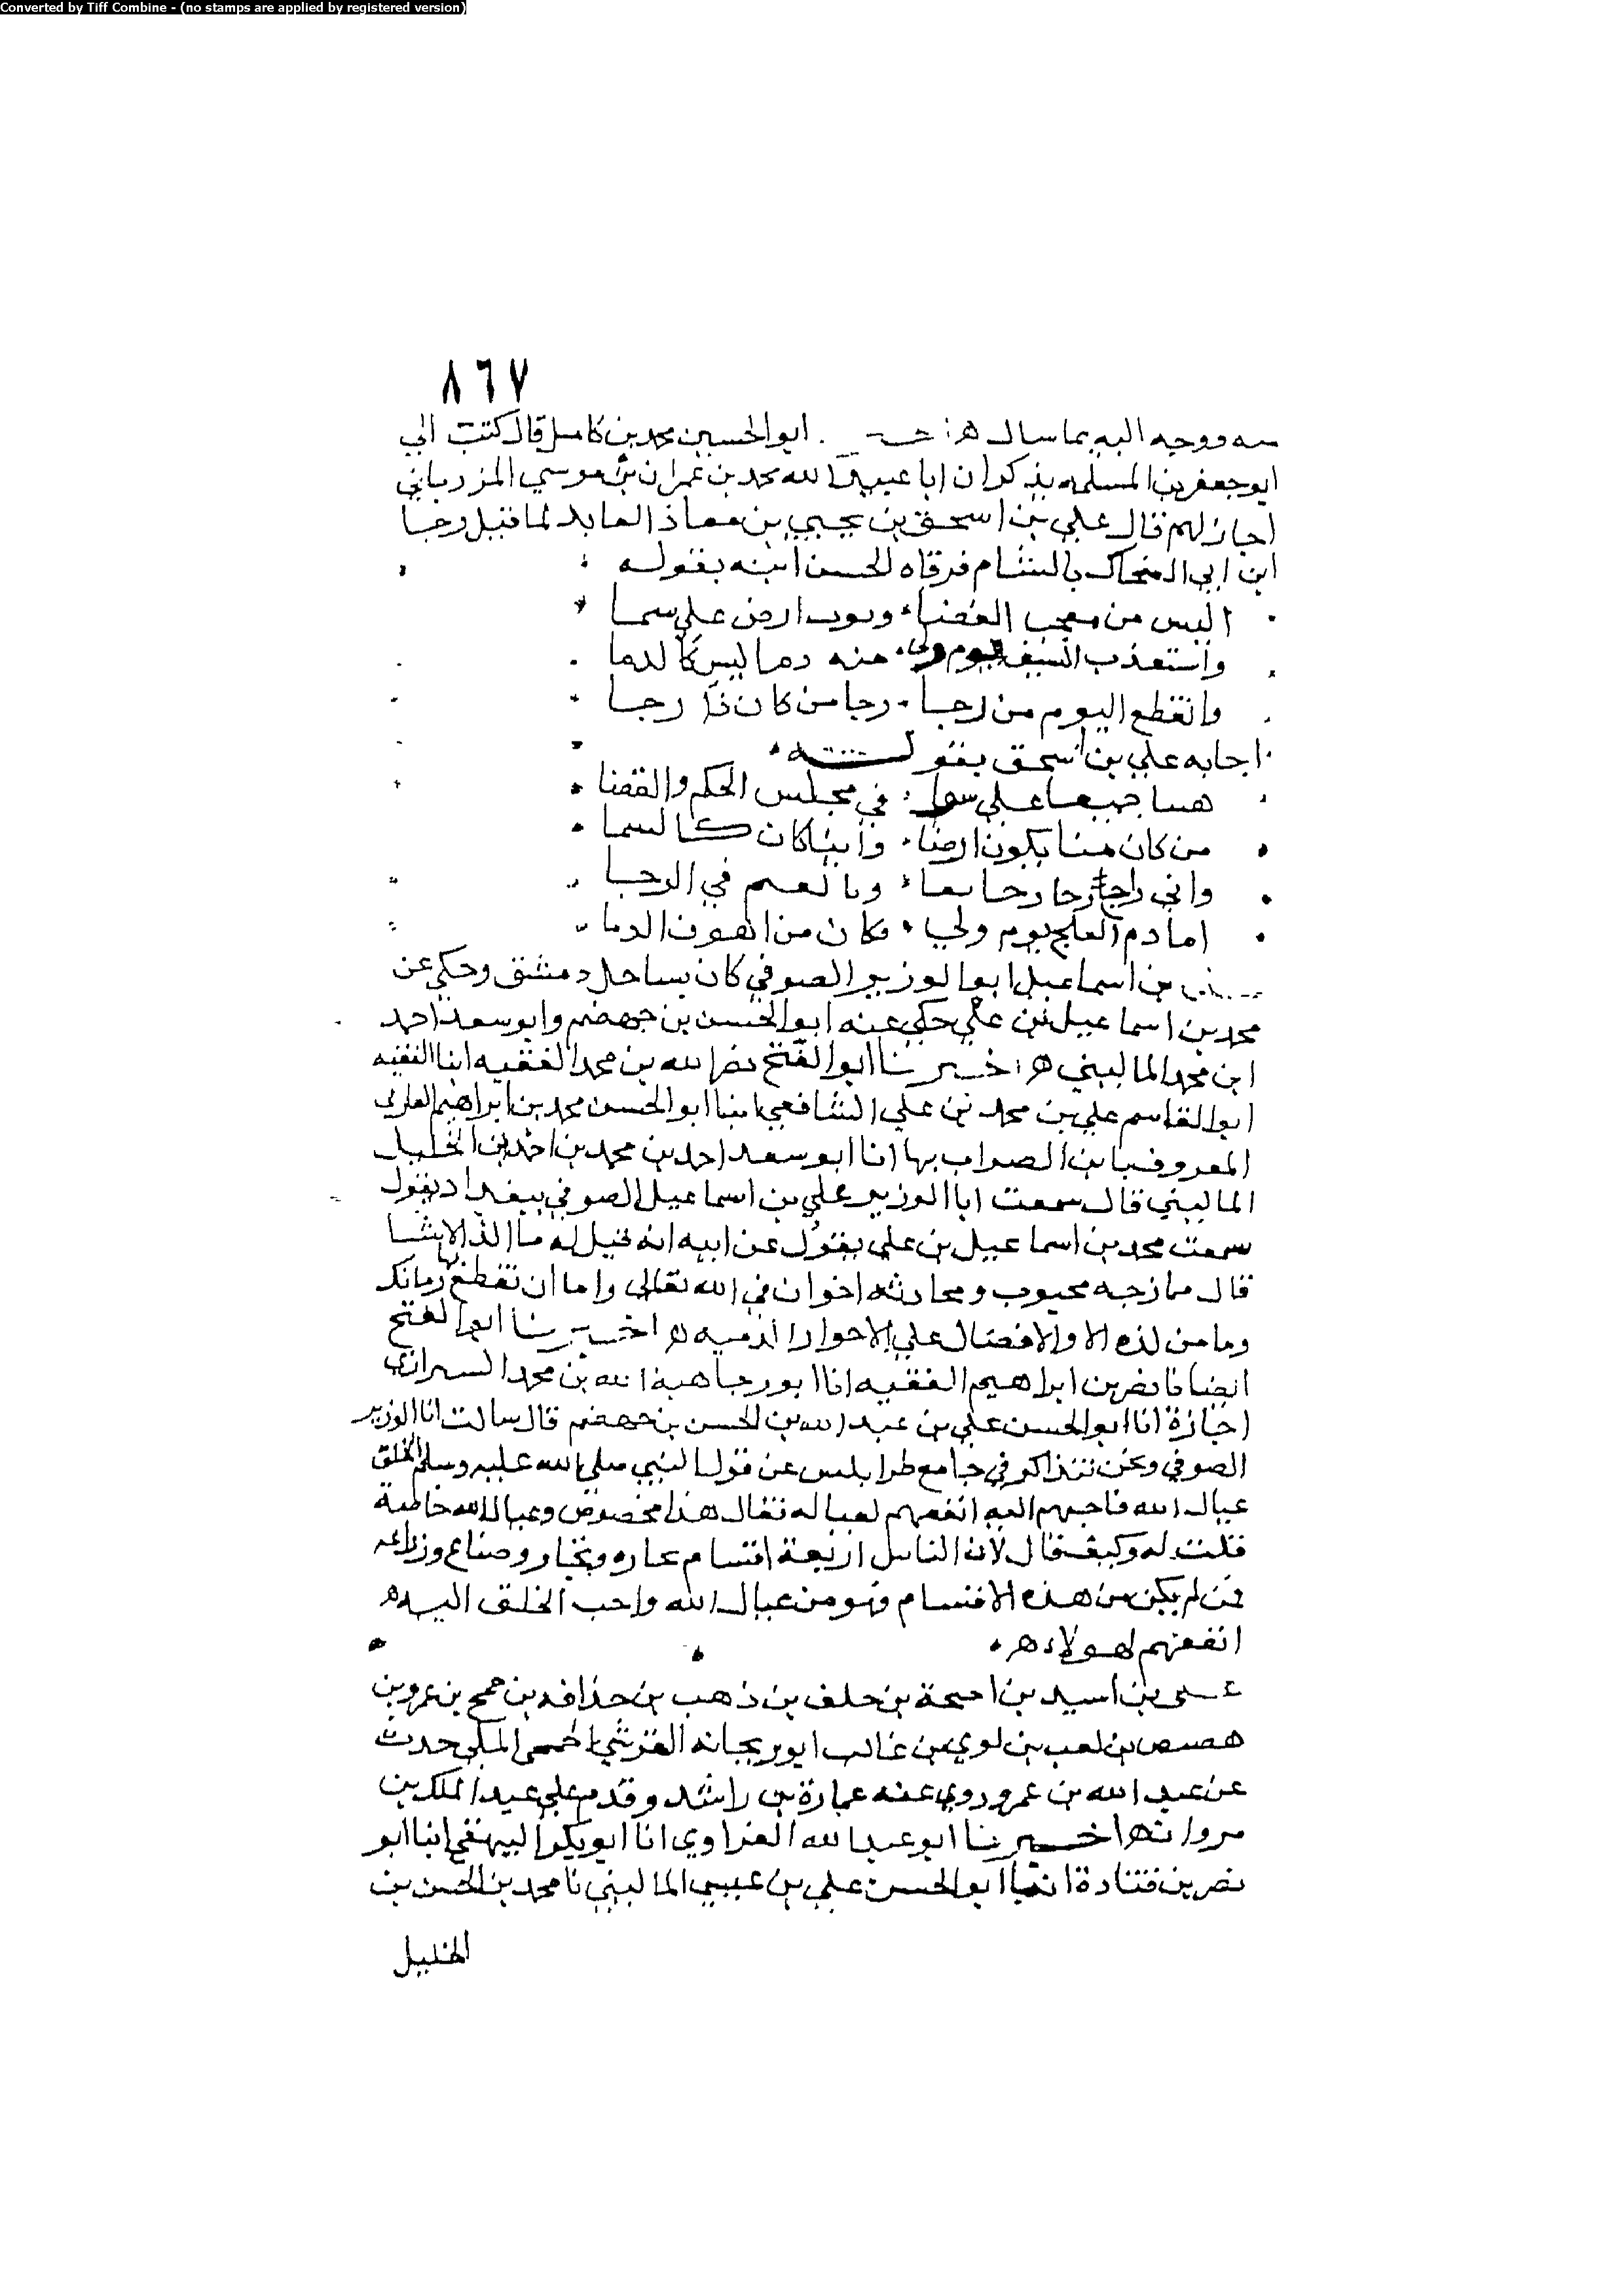 Converted by Tiff Combine - (no stamps are applied by registered version)
٨٦٧
ووجه اليه بما سال ه ابو الحسين محمد بن كامل قال كتب الي
ابو جعفر بن المسلمه يذكر ان ابا عبيد الله محمد بن عمران بن موسي المزرباني
اجاز لهم قال علي بن اسحق بن يحيي بن معاذ العابد لما قتل رجا
ابن ابي الضحاك بالشام فرقاه الحسن ابنه بقوله
اليس من معجب القضا ارض علي سما
واستعذب السيف يوم ولي منه دما ليس كالدما
وانقطع اليوم من رجا رجا من كان ذا رجا
اجابه علي بن اسحق بقوله
هما جميعا علي سوا في مجلس الحكم والقضا
من كان منا يكون ارضا واينا كان كالسما
واني في الرجا
اما دم العلج يوم ولي فكان من اهون الدما
بن اسماعيل ابو الوزير الصوفي كان بساحل دمشق وحكي عن
محمد بن اسماعيل بن علي حكي عنه ابو الحسن بن جهضم وابو سعد احمد
ابن محمد الماليني ه اخبرنا ابو الفتح نصر الله بن محمد الفقيه ابنا الفقيه
ابو القاسم علي بن محمد بن علي الشافعي ابنا ابو الحسن محمد بن ابراهيم
المعروف بابن الصراب بها انا ابو سعد احمد بن محمد بن احمد بن الخليل
الماليني قال سمعت ابا الوزير علي بن اسماعيل الصوفي ببغداد يقول
سمعت محمد بن اسماعيل بن علي يقول عن ابيه انه قيل له ما الذ الاشيا
قال ممازجه محبوب ومحادثه اخوان في الله تعالى واماان تقطع بها زمانك
وما من لذه الا والافضال علي الاحوار اذميه ه اخبرنا ابو الفتح
ايضا نا نصر بن ابراهيم الفقيه انا ابو رجا هبة الله بن محمد
اجازة انا ابو الحسن علي بن عبد الله بن الحسن بن جهضم قال سالت ابا الوزير
الصوفي ونحن نتذاكر في جامع طرابلس عن قول النبي صلي الله عليه وسلم الخلق
عيال الله فاحبهم اليه انفعهم لعياله فقال هذا مخصوص وعيال الله خاصة
قلت له وكيف قال لان الناس اربعة اقسام وتجار وصناع وزراعه
فمن لم يكن من هذه الاقسام فهو من عيال الله واحب الخلق اليه ه
انفعهم لهولاء ه
علي بن اسيد بن احيحة بن خلف بن وهب بن حذافه بن جمح بن عمرو بن
هصيص بن لعب بن لوي بن غالب ابو ريحانه القرشي الجمحي المكي حدث
عن عبد الله بن عمرو روي عنه عمارة بن راشد وقدم علي عبد الملك بن
مروان ه اخبرنا ابو عبد الله الفراوي انا ابو بكر البيهقي ابنا ابو
نصر بن قتادة انبا ابو الحسن علي بن عيسي الماليني نا محمد بن الحسن بن
الخليل